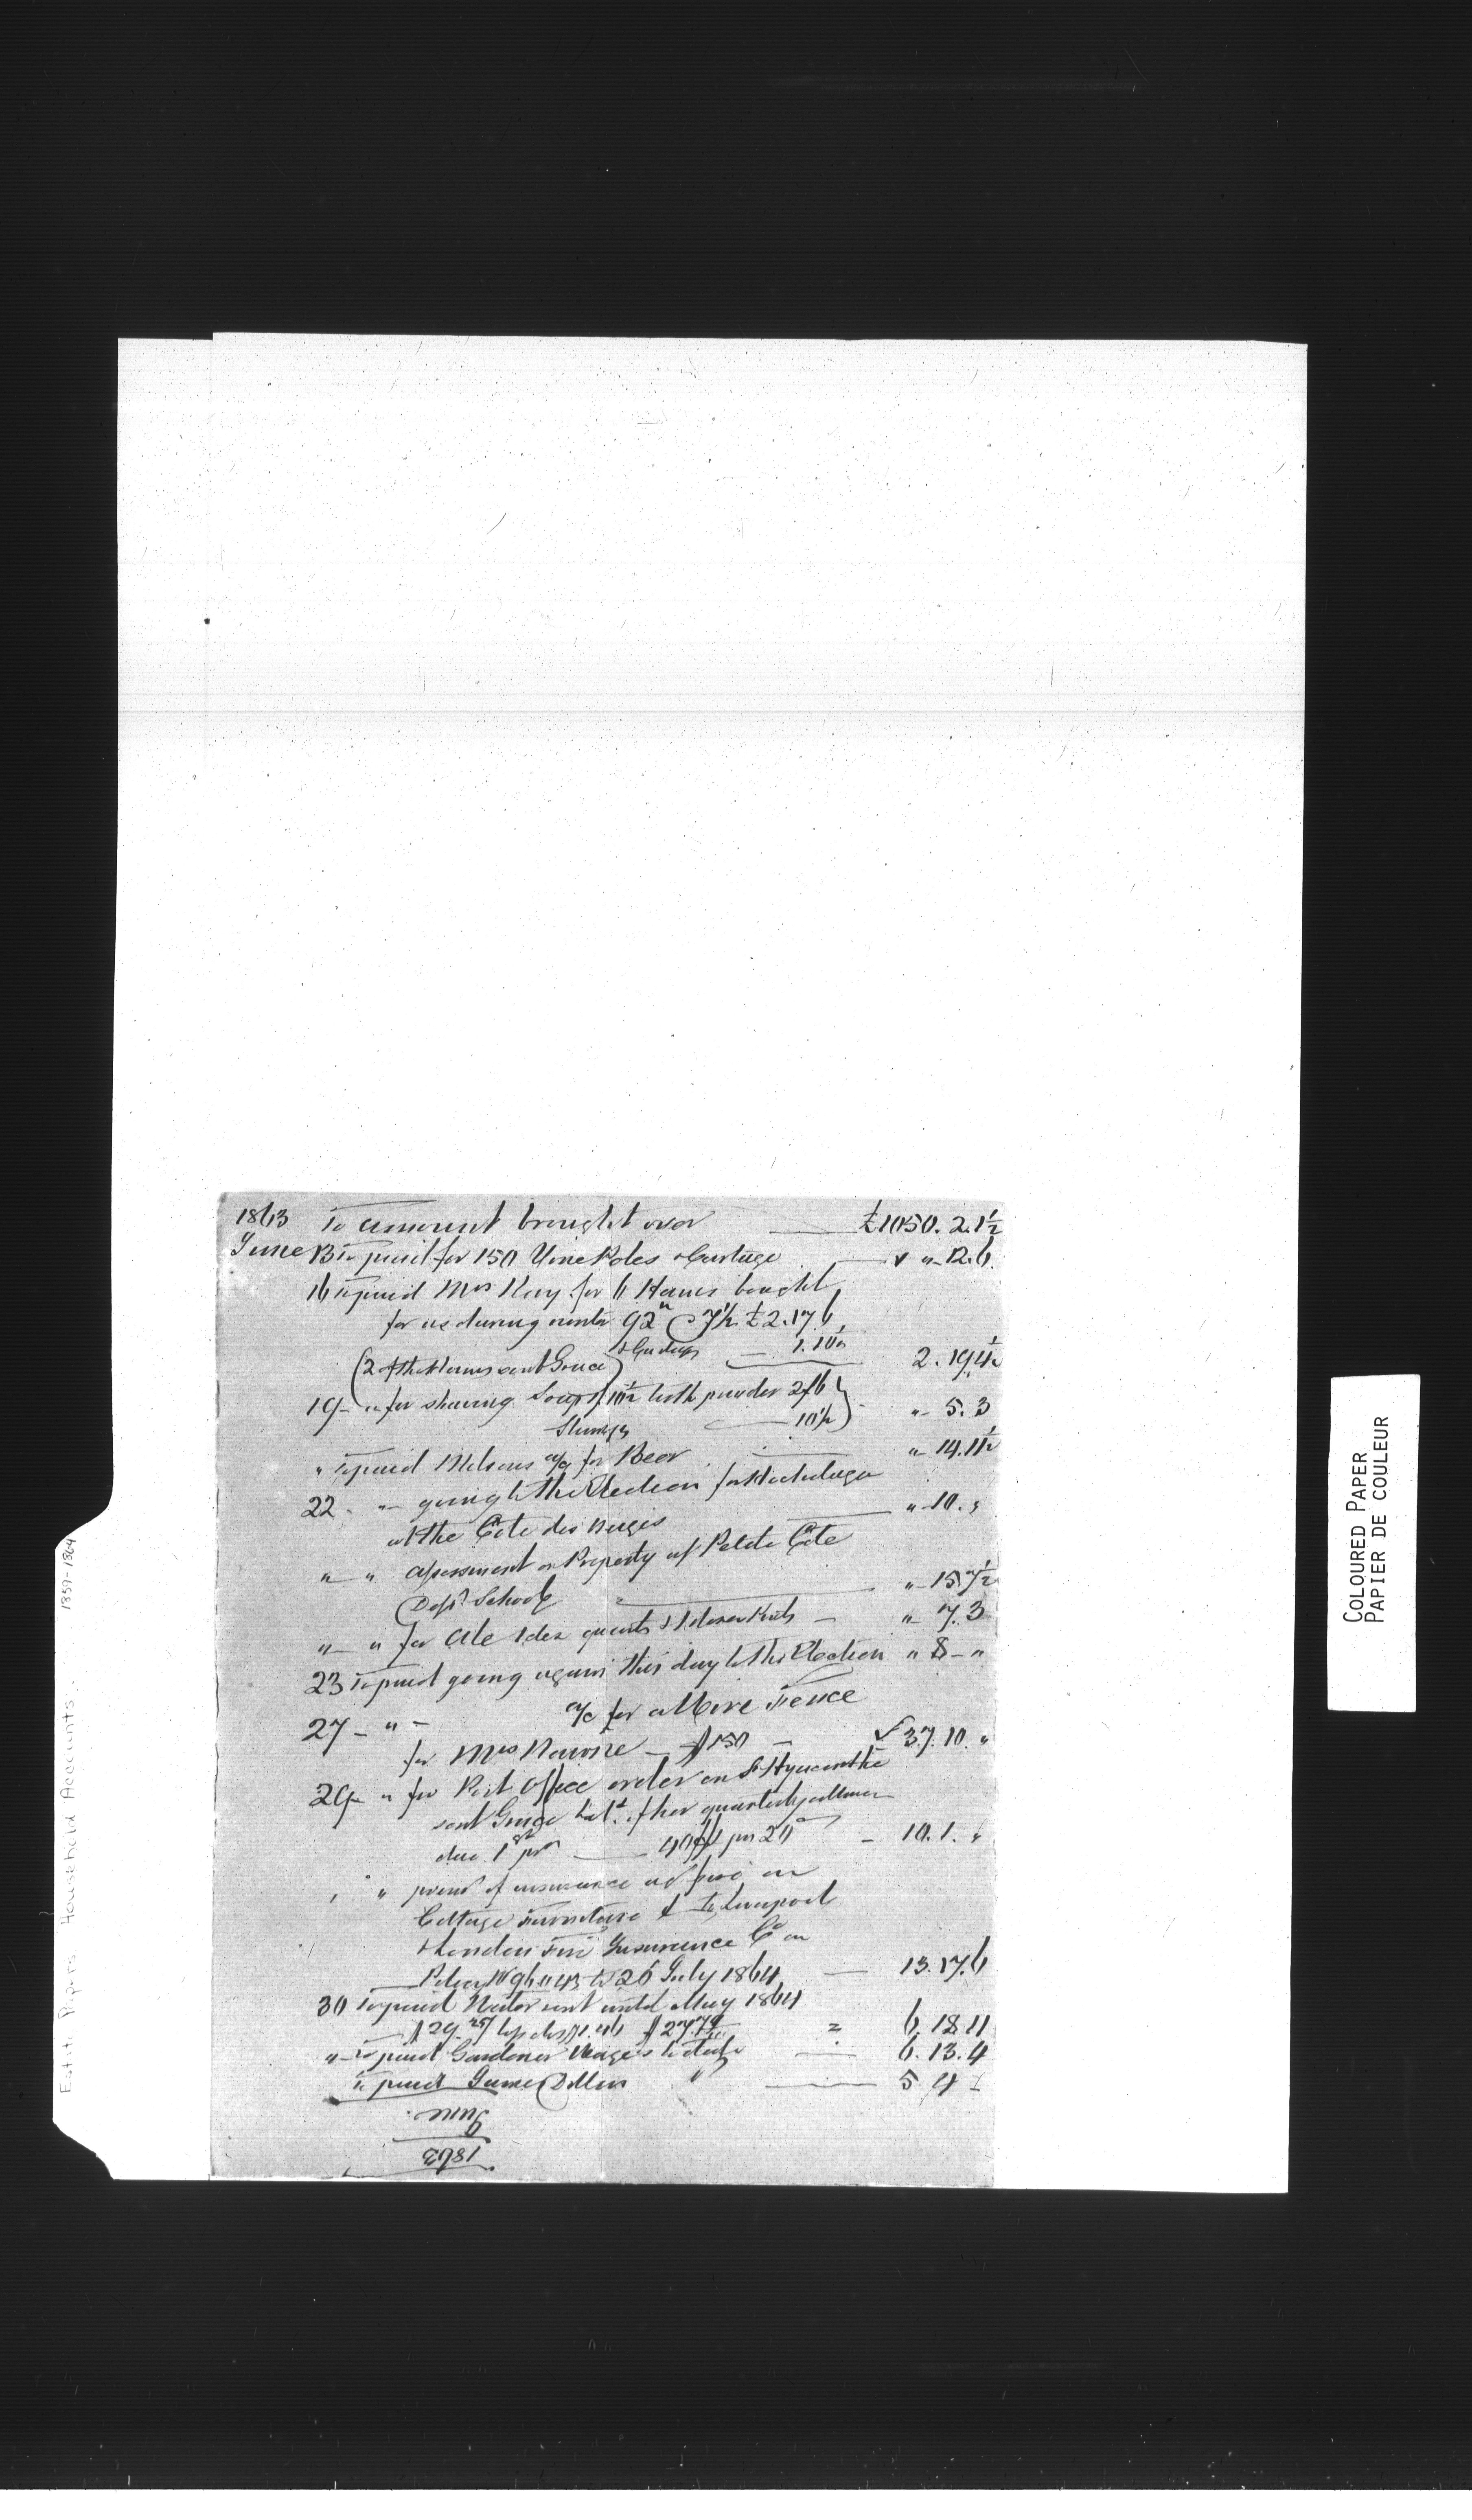 1863 To amount brought over £1050. 2. 1½
June 13 To paid for 150 Vine Poles & Cartage " 12. 6
16 To paid Mrs Kay for 6 Hams bought
for us during winter 92 @ 7½ £2. 17. 6
(2 of the Hams sent ) & Cartage 1. 10½ 2. 19. 4½
19 " for shaving Soap 1/10½ tooth powder 2/6
Stamps 10½ " 5. 3
" To paid Molsons a/c for Beer " 14. 11½
22 " going to the Election for Hochelaga
at the Côte des Neiges " 10. "
" " assessment on Property at Petite Côte
School " 15. 7½
" " for Ale 1 doz quarts & 1 dozen Pints " 7. 3
23 To paid going again this day to the Election " 8 – "
27 – " – a/c for a Wire Fence
for Mrs $150 37. 10. "
29 " for Post Office order on St Hyacinthe
sent
due 1st 10. 1. "
" " prem of insurance on
Cottage Furniture & to Liverpool
& London Fire Insurance Co on
Policy July 1864 13. 17. 6
30 To paid Water rent until May 1864
$29. 6. 18. 11
" To paid Gardener Wages to date 6. 13. 4
To paid James Dillon " 5 4
June.
1863
Estate Papers Household Accounts 1859-1864
COLOURED PAPER
PAPIER DE COULEUR